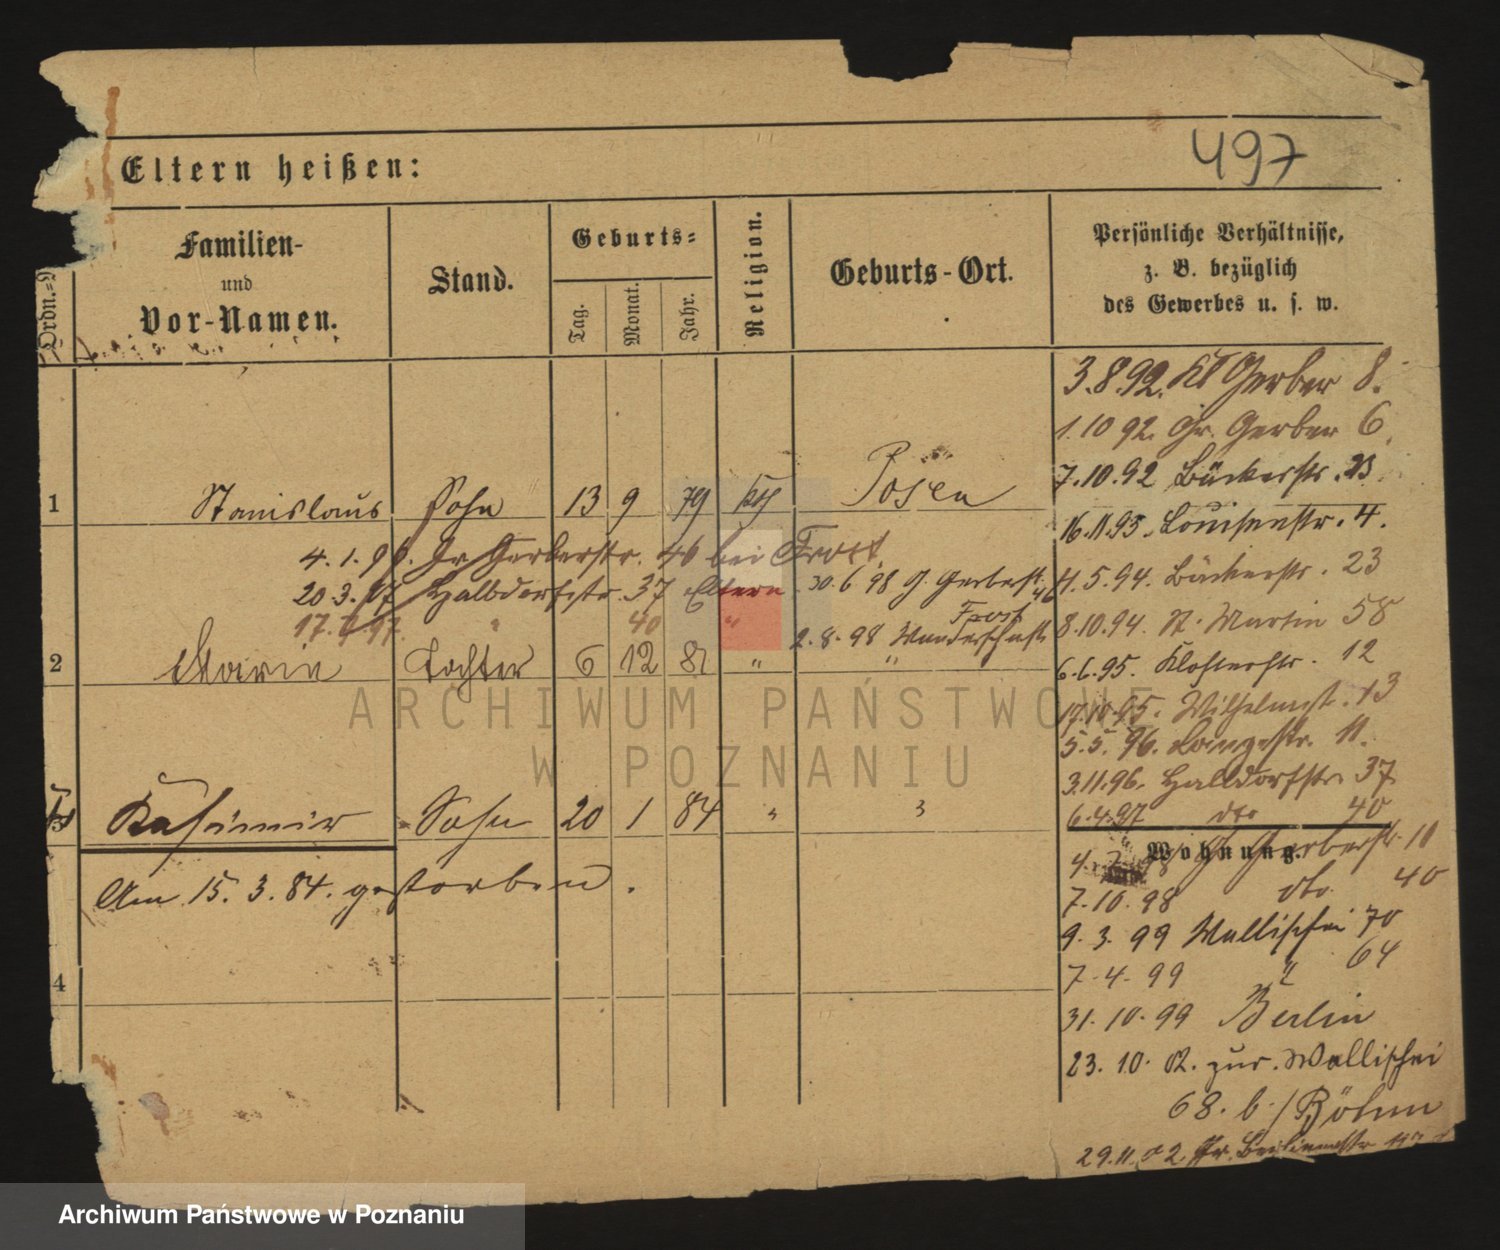 497
Eltern heißen:
Ordn.=
Familien-
und
Vor-Namen.
Stand.
Geburts=
Tag.
Monat.
Jahr.
Religion.
Geburts-Ort.
Persönliche Verhältnisse,
z. B. bezüglich
des Gewerbes u. s. w.
1 Stanislaus Sohn 13 9 79 kth Posen
4. 1. Gr Gerberstr. 46 bei Frost
20.3.97 Halbdorfstr. 37 Eltern
17. 97 " 40 "
30.6 98 G. Gerberst. 46
Frost
2.8.98 Wunderschnstr
2 Maria Tochter 6 12 81 " "
3 Kasimir Sohn 20 1 84 " "
Am 15. 3. 84. gestorben.
4
3.8.92. Kl Gerber 8.
1.10 92. Gr. Gerber 6.
7.10.92 Bäckerstr. 23
16.11.93. Louisenstr. 4.
4.5.94. Bäckerstr. 23
8.10.94. St. Martin 58
6.6.95. Klosterstr. 12
17.10.95. Wilhelmst. 13
5.5. 96. Langestr. 11.
3.11.96. Halbdorfstr 37
6.4.97 dto 40
Wohnung.
4. 98 G Gerberstr. 11
7.10.98 dto. 40
9. 3. 99 Wallischei 70
7-4.99 " 64
31.10.99 Berlin
23.10. 02. zur. Wallischei
68. b./Böhm
29.11.02. Gr. Berlinerstr
ARCHIWUM PAŃSTWOWE
W POZNANIU
Archiwum Państwowe w Poznaniu